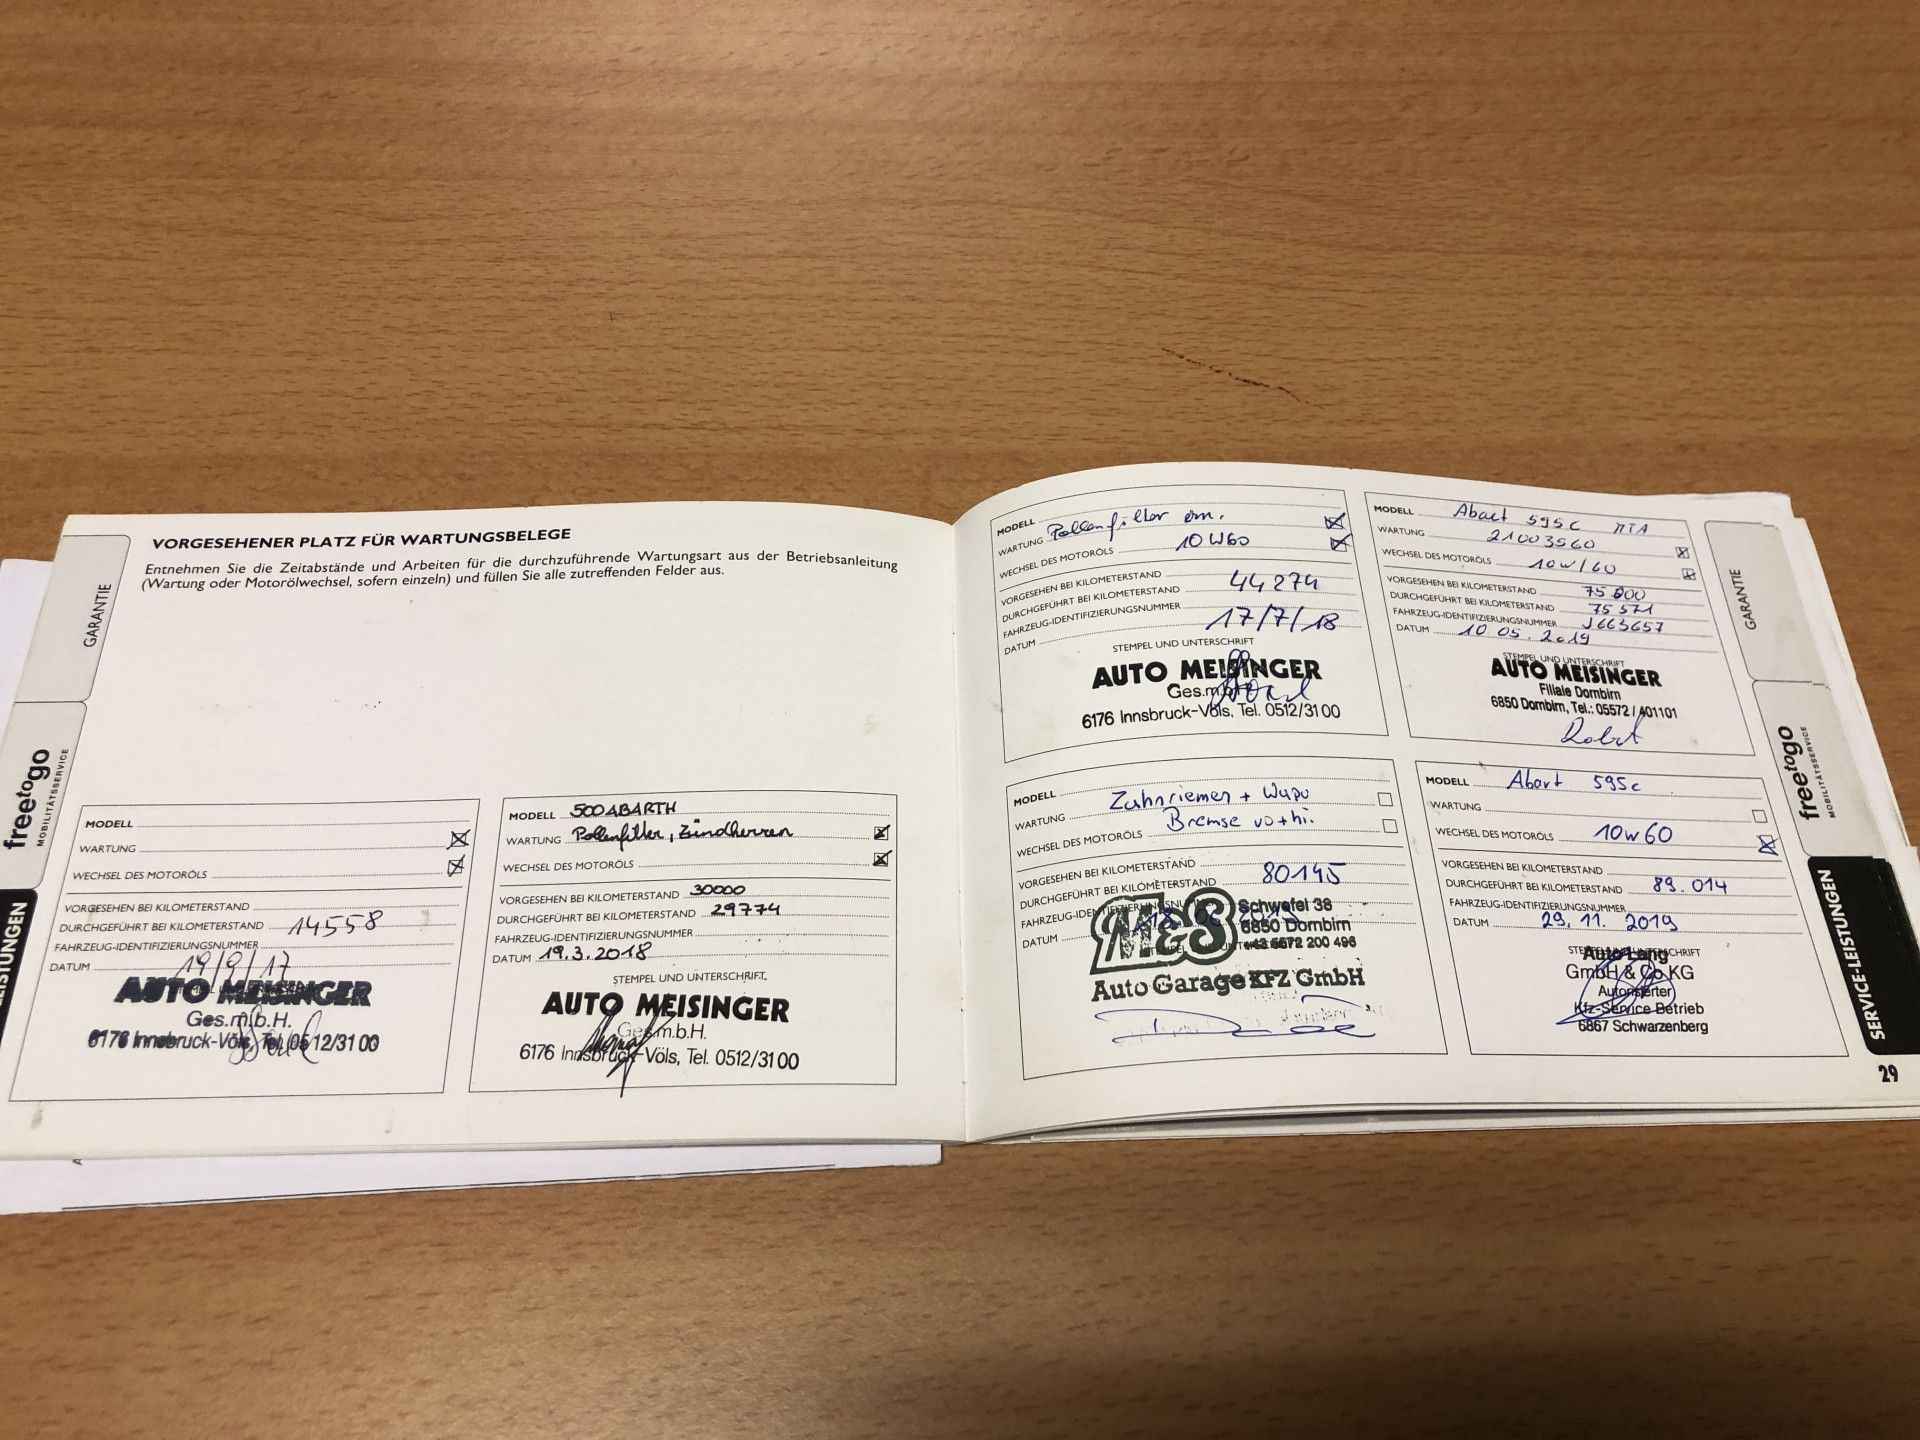 VORGESEHENER PLATZ FÜR WARTUNGSBELEGE
Entnehmen Sie die Zeitabstände und Arbeiten für die durchzuführende Wartungsart aus der Betriebsanleitung
(Wartung oder Motorölwechsel, sofern einzeln) und füllen Sie alle zutreffenden Felder aus.
GARANTIE
freetogo
MOBILITÄTSSERVICE
EISTUNGEN
MODELL
WARTUNG
WECHSEL DES MOTORÖLS
VORGESEHEN BEI KILOMETERSTAND
DURCHGEFÜHRT BEI KILOMETERSTAND 14558
FAHRZEUG-IDENTIFIZIERUNGSNUMMER
DATUM 19/9/17
AUTO MEISINGER
Ges.m.b.H.
6176 Innsbruck-Völs, Tel. 0512/31 00
MODELL 500 ABARTH
WARTUNG Pollenfilter, Zündkerzen
WECHSEL DES MOTORÖLS
VORGESEHEN BEI KILOMETERSTAND 30000
DURCHGEFÜHRT BEI KILOMETERSTAND 29774
FAHRZEUG-IDENTIFIZIERUNGSNUMMER
DATUM 19.3.2018
STEMPEL UND UNTERSCHRIFT
AUTO MEISINGER
Ges.m.b.H.
6176 Innsbruck-Völs, Tel. 0512/31 00
MODELL
WARTUNG Pollenfilter
WECHSEL DES MOTORÖLS 10W60
VORGESEHEN BEI KILOMETERSTAND
DURCHGEFÜHRT BEI KILOMETERSTAND 44274
FAHRZEUG-IDENTIFIZIERUNGSNUMMER
DATUM 17/7/18
STEMPEL UND UNTERSCHRIFT
AUTO MEISINGER
Ges.m.b.H.
6176 Innsbruck-Völs, Tel. 0512/31 00
MODELL Abart 595c MTA
WARTUNG 21003560
WECHSEL DES MOTORÖLS 10W/60
VORGESEHEN BEI KILOMETERSTAND 75000
DURCHGEFÜHRT BEI KILOMETERSTAND 75571
FAHRZEUG-IDENTIFIZIERUNGSNUMMER J663657
DATUM 10 05. 2019
STEMPEL UND UNTERSCHRIFT
AUTO MEISINGER
Filiale Dornbirn
6850 Dornbirn, Tel.: 05572 / 401101
MODELL
Zahnriemen + Wapu
WARTUNG
Bremse vo + hi.
WECHSEL DES MOTORÖLS
VORGESEHEN BEI KILOMETERSTAND
DURCHGEFÜHRT BEI KILOMETERSTAND 80145
FAHRZEUG-IDENTIFIZIERUNGSNUMMER
DATUM
M&S
Schwefel 38
6850 Dornbirn
+43 5572 200 496
Auto Garage KFZ GmbH
MODELL Abart 595c
WARTUNG
WECHSEL DES MOTORÖLS 10w60
VORGESEHEN BEI KILOMETERSTAND
DURCHGEFÜHRT BEI KILOMETERSTAND 89.014
FAHRZEUG-IDENTIFIZIERUNGSNUMMER
DATUM 29.11.2019
STEMPEL UND UNTERSCHRIFT
Auto Lang
GmbH & Co KG
Autorisierter
Kfz-Service Betrieb
6867 Schwarzenberg
GARANTIE
freetogo
MOBILITÄTSSERVICE
SERVICE-LEISTUNGEN
29